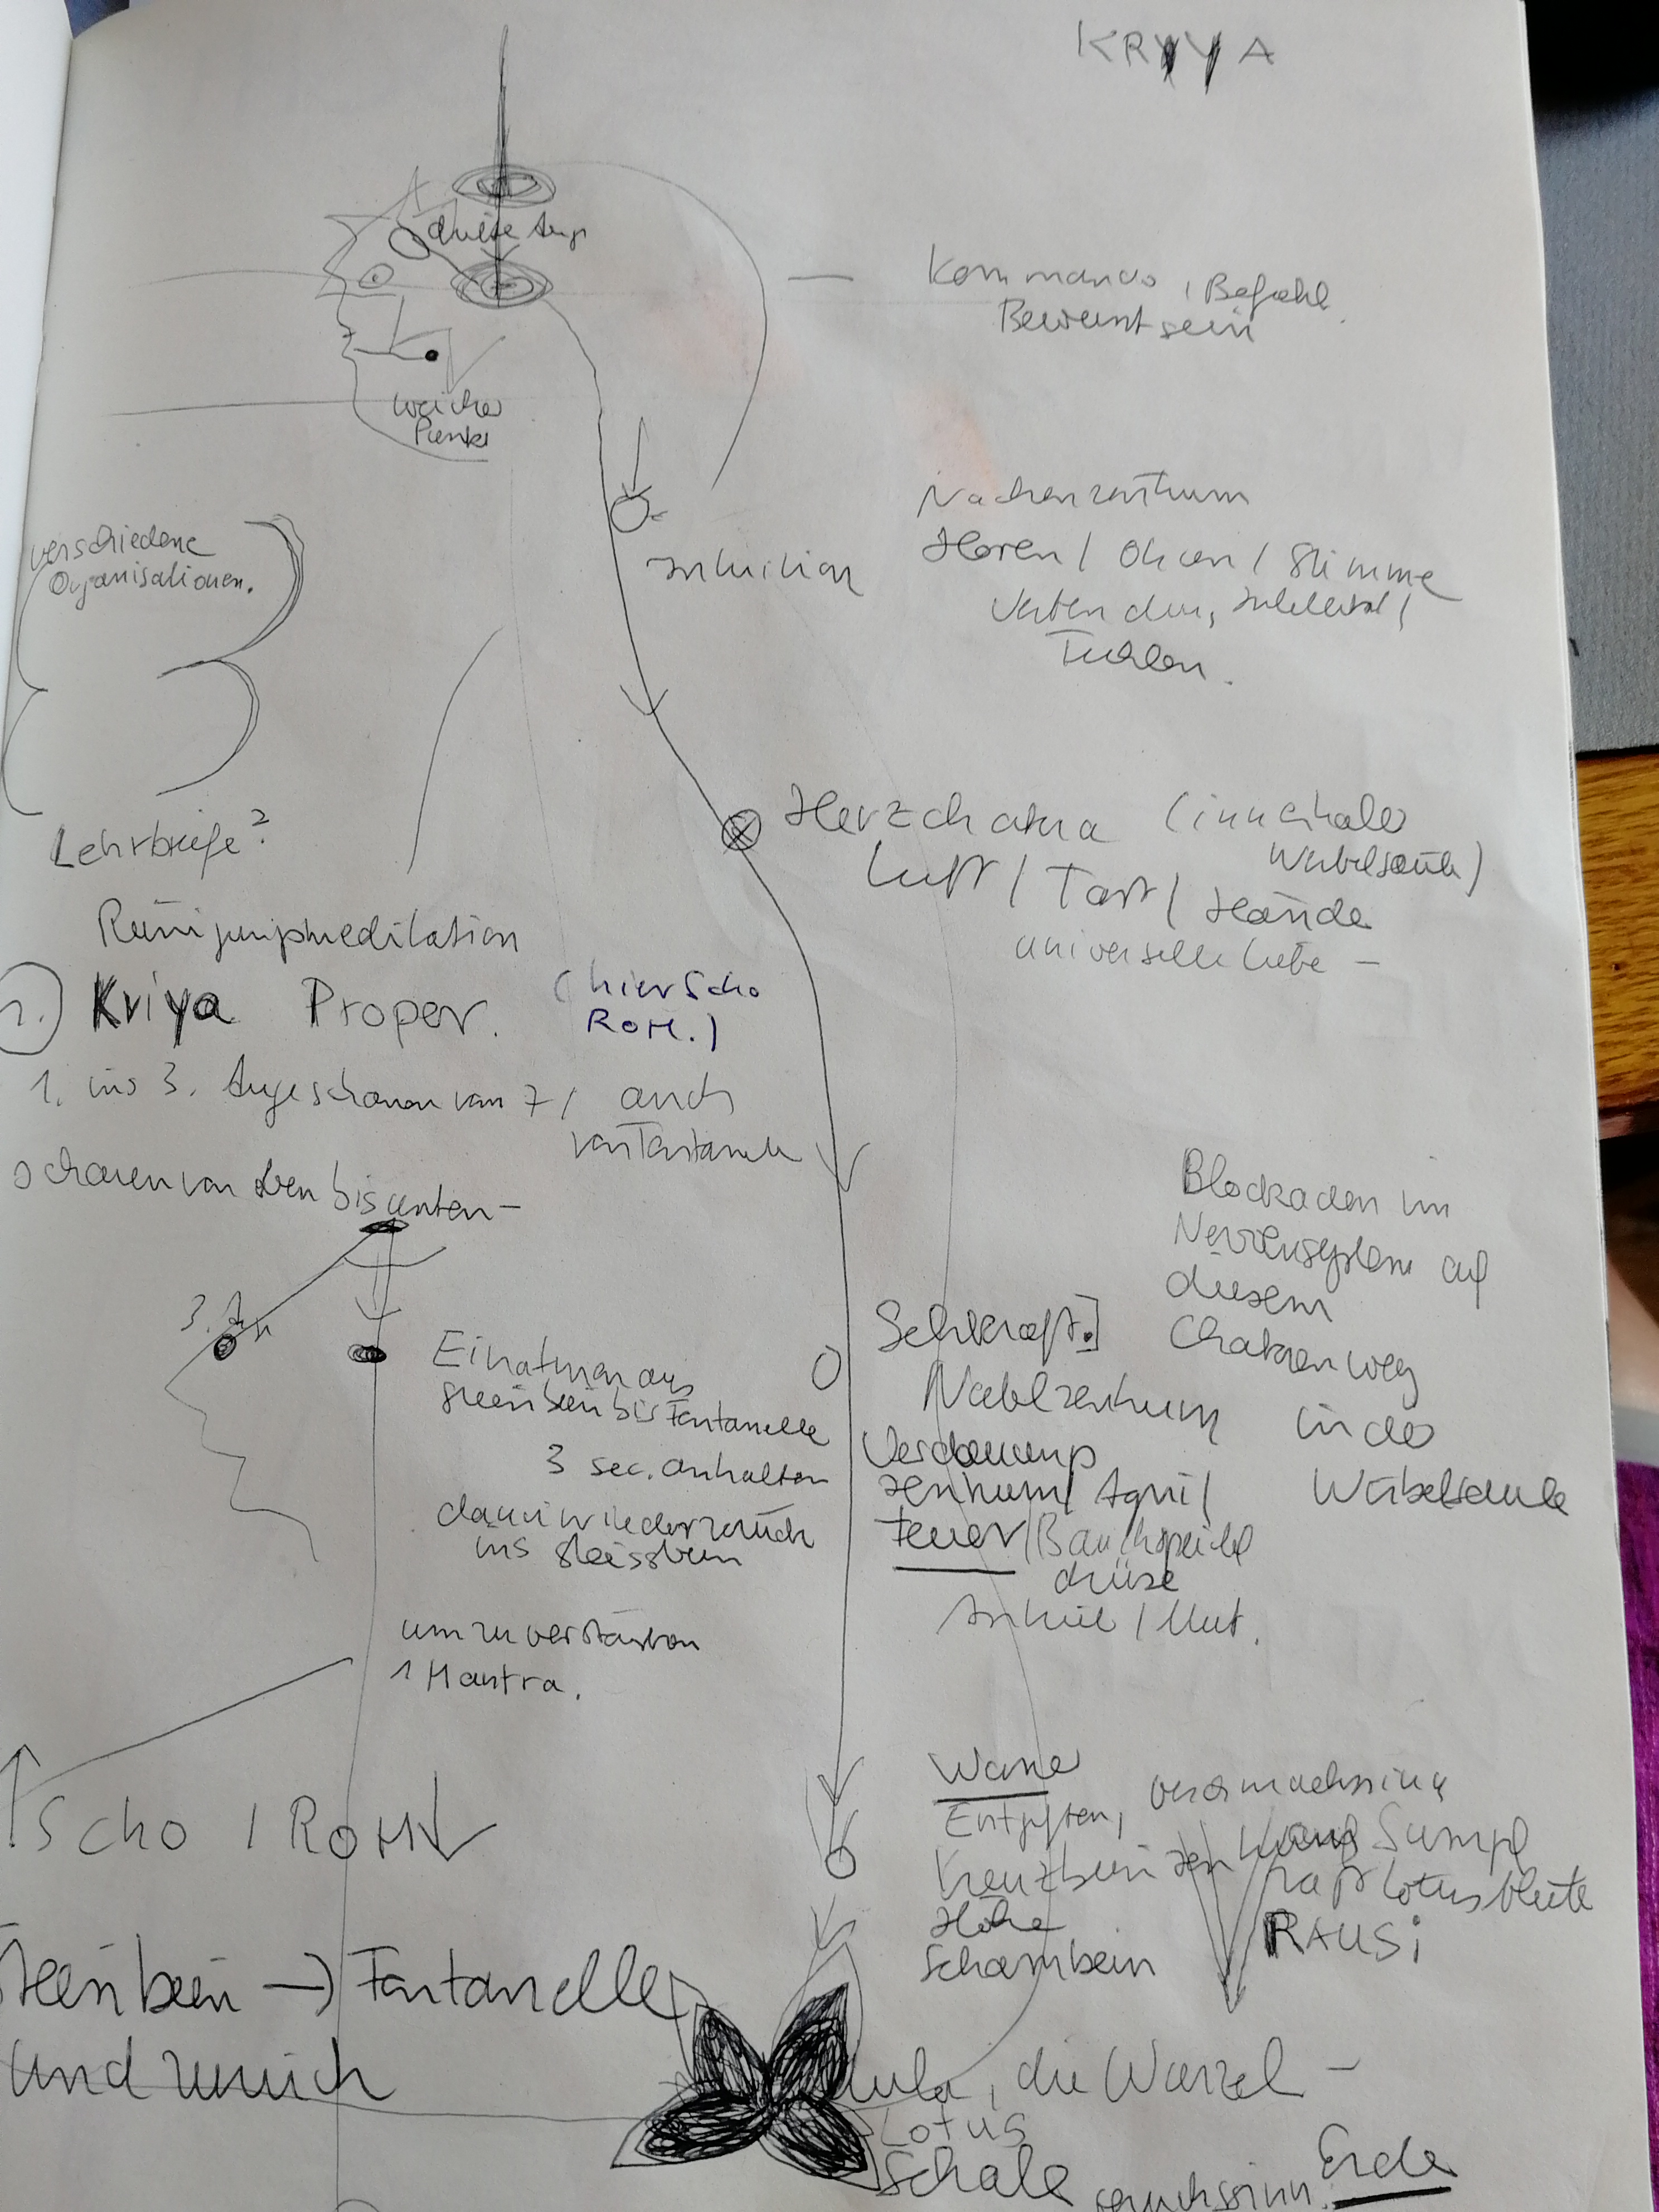 KRYYA
dritte Auge
Kommando, Befehl
Bewusstsein
weicher
Punkt
Nackenzentrum
Hören / Ohren / Stimme
Intellekt /
Fühlen.
Intuition
verschiedene
Organisationen.
Herzchakra (innerhalb
Wirbelsäule)
Luft / Tast / Hände
universelle Liebe –
Lehrbriefe?
Reinigungsmeditation
Kriya Proper. (hier Scho
ROM.)
1. ins 3. Auge schauen von / auch
von Fontanelle
schauen von oben bis unten –
3. A
Einatmen aus
Steinbein bis Fontanelle
3 sec. anhalten
dann wieder zurück
ins Steissbein
um zu verstärken
1 Mantra.
Blockaden im
Nervensystem auf
diesem
Chakrenweg
in der
Wirbelsäule
Sehkraft.]
Nabelzentrum
Verdauungs
zentrum / Agni /
Feuer / Bauchspeichel
drüse
/ Mut.
Scho / ROM
Steinbein → Fontanelle
und zurück
Wasser
Entgiften,
Kreuzbein
Höhe
Schambein
Sumpf
Lotusblüte
RAUS!
, die Wurzel –
Lotus
Schale
Geruchssinn.
Erde